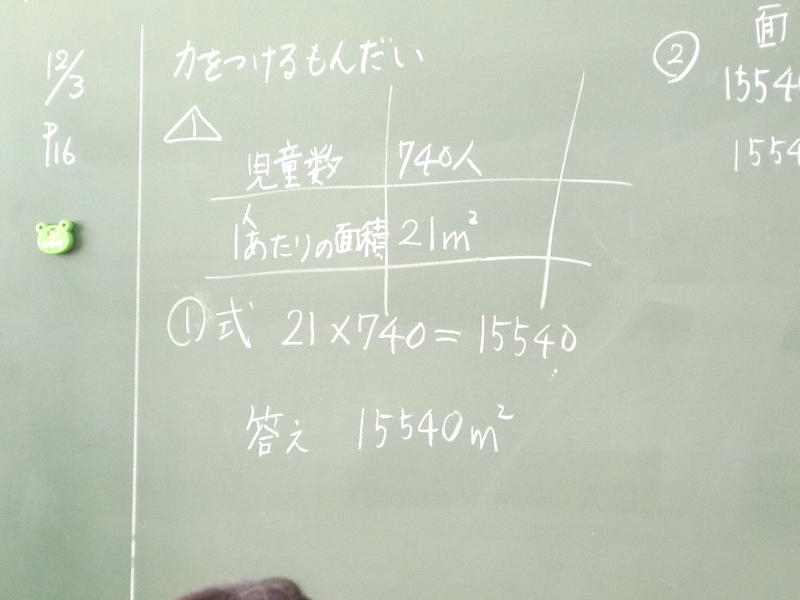 12/3
P16
力をつけるもんだい
1
児童数 740人
1人あたりの面積 21m²
①式 21×740=15540
答え 15540m²
②
面
1554
1554